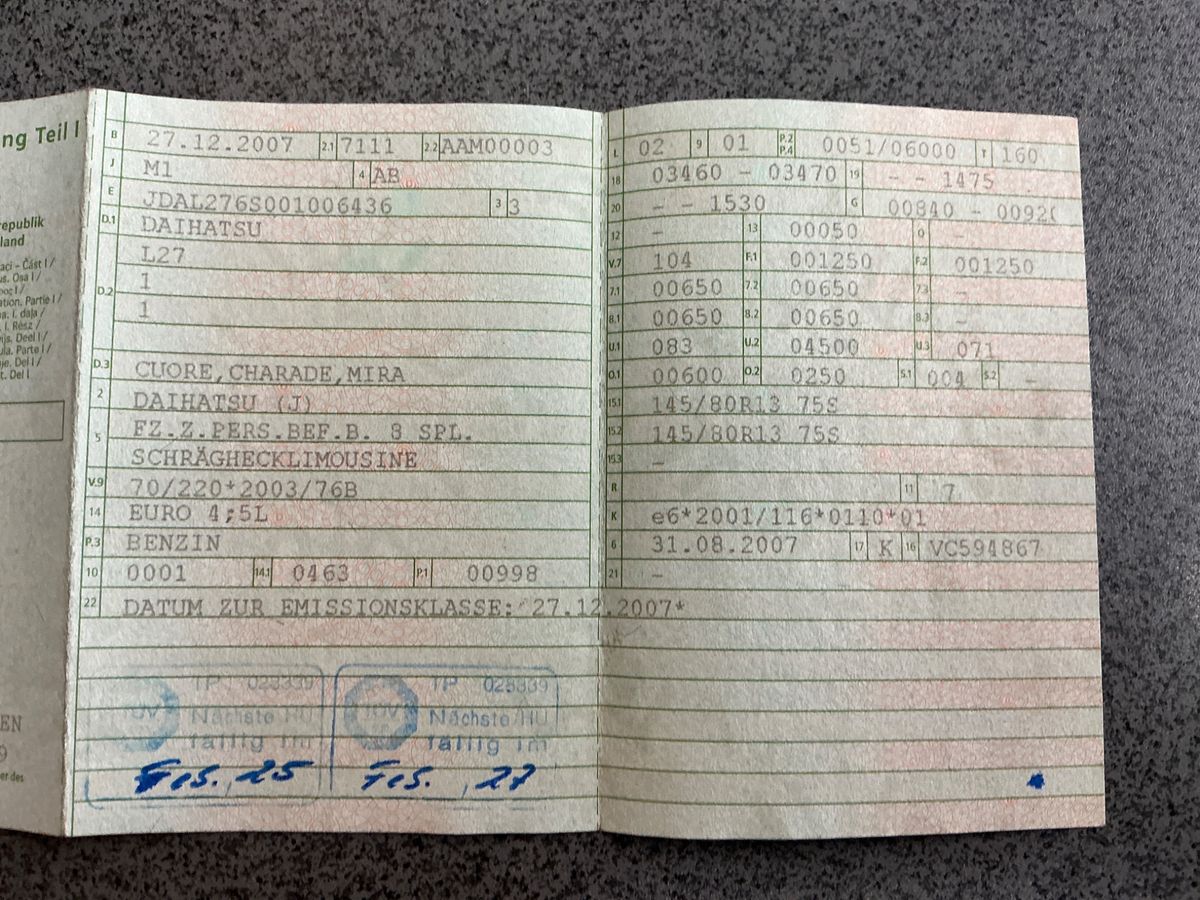 ng Teil I
republik
land
aci - Část I /
us. Osa I /
ation. Partie I /
a. I. daļa /
. I. Rész /
ijs. Deel I /
ula. Parte I /
je. Del I /
t. Del I
EN
9
er des
B 27.12.2007 2.1 7111 2.2 AAM00003
J M1 4 AB
E JDAL276S001006436 3 3
D.1 DAIHATSU
L27
D.2 1
1
D.3 CUORE,CHARADE,MIRA
2 DAIHATSU (J)
5 FZ.Z.PERS.BEF.B. 8 SPL.
SCHRÄGHECKLIMOUSINE
V.9 70/220*2003/76B
14 EURO 4;5L
P.3 BENZIN
10 0001 14.1 0463 P.1 00998
22 DATUM ZUR EMISSIONSKLASSE: 27.12.2007*
TP 028339
TÜV Nächste HU
fällig im
Feb. 25
TP 028339
TÜV Nächste HU
fällig im
Feb. 27
L 02 9 01 P.2 P.4 0051/06000 T 160
18 03460 - 03470 19 - - 1475
20 - - 1530 G 00840 - 0092
12 - 13 00050 Q -
V.7 104 F.1 001250 F.2 001250
7.1 00650 7.2 00650 7.3 -
8.1 00650 8.2 00650 8.3 -
U.1 083 U.2 04500 U.3 071
O.1 00600 O.2 0250 S.1 004 S.2 -
15.1 145/80R13 75S
15.2 145/80R13 75S
15.3 -
R 11 7
K e6*2001/116*0110*01
6 31.08.2007 17 K 16 VC594867
21 -